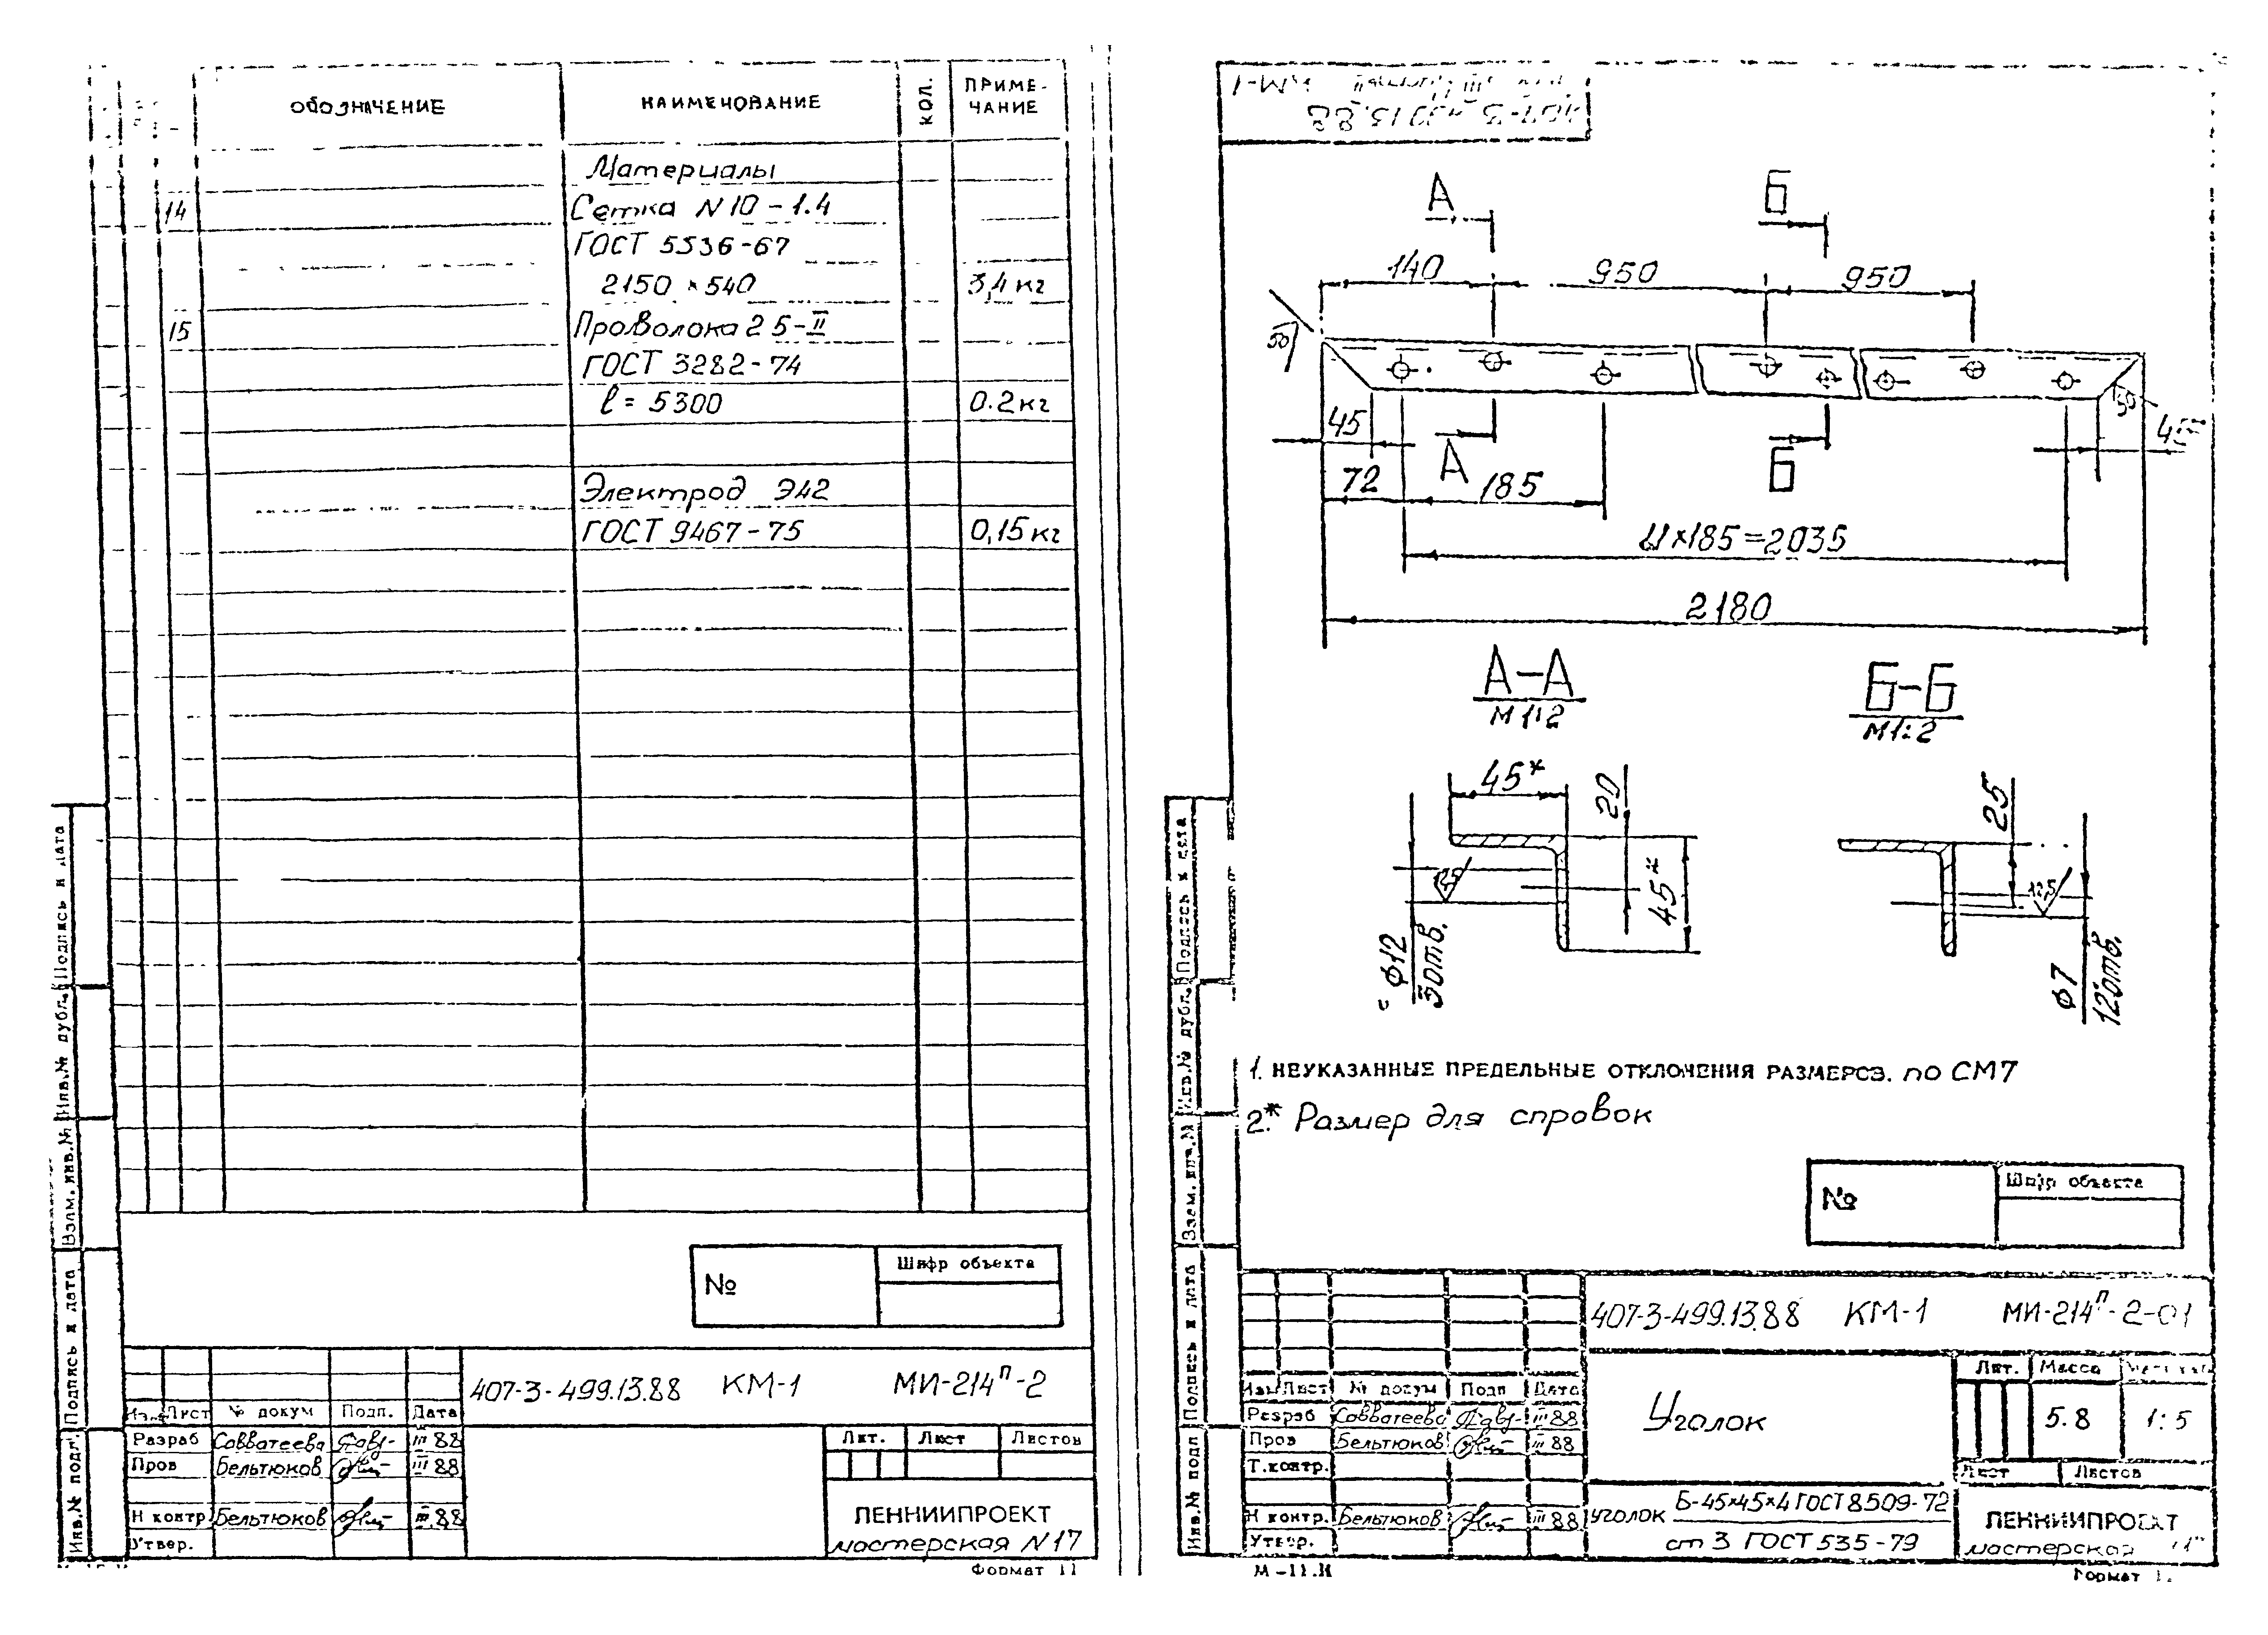 ОБОЗНАЧЕНИЕ
НАИМЕНОВАНИЕ
КОЛ.
ПРИМЕ-
ЧАНИЕ
Материалы
14
Сетка N 10 - 1.4
ГОСТ 5536-67
2150 × 540
3,4 кг
15
Проволока 2 5-II
ГОСТ 3282-74
ℓ = 5300
0.2 кг
Электрод Э42
ГОСТ 9467-75
0,15 кг
Подпись и дата
Инв.№ дубл.
Взам.инв.№
Подпись и дата
Инв.№ подл.
№
Шифр объекта
407-3-499.13.88 КМ-1 МИ-214п-2
Изм Лист № докум Подп. Дата
Разраб Савватеева III 88
Пров Бельтюков III 88
Н контр. Бельтюков III.88
Утвер.
Лит. Лист Листов
ЛЕННИИПРОЕКТ
мастерская N 17
Формат 11
407-3-499.13.88
КМ-1
А
Б
140
950
950
50
50
45
45
А
Б
72
185
11×185=2035
2180
А-А
М 1:2
Б-Б
М1:2
45*
20
45*
12,5
ϕ12
3отв.
25
12,5
ϕ7
12отв.
1. НЕУКАЗАННЫЕ ПРЕДЕЛЬНЫЕ ОТКЛОНЕНИЯ РАЗМЕРОВ. по СМ7
2.* Размер для справок
Подпись и дата
Инв.№ дубл.
Взам.инв.№
Подпись и дата
Инв.№ подл
№
Шифр объекта
407-3-499.13.88 КМ-1 МИ-214п-2-01
Изм Лист № докум Подп Дата
Разраб Савватеева III 88
Пров Бельтюков III 88
Т.контр.
Н контр. Бельтюков III 88
Утвер.
Уголок
Лит. Масса
5.8
1:5
Лист Листов
уголок Б-45×45×4 ГОСТ 8509-72
ст 3 ГОСТ 535-79
ЛЕННИИПРОЕКТ
мастерская
М-11.И
Формат